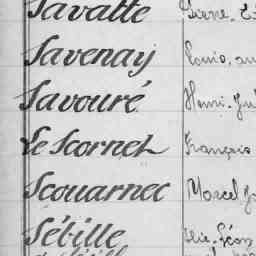 Savatte Pierre
Savenay Louis
Savouré Henri
Le Scornet François
Scouarnec Marcel
Sébille